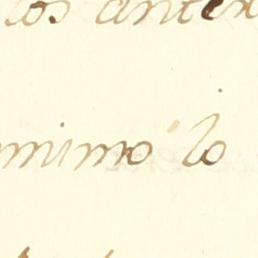 los anter
mimo lo